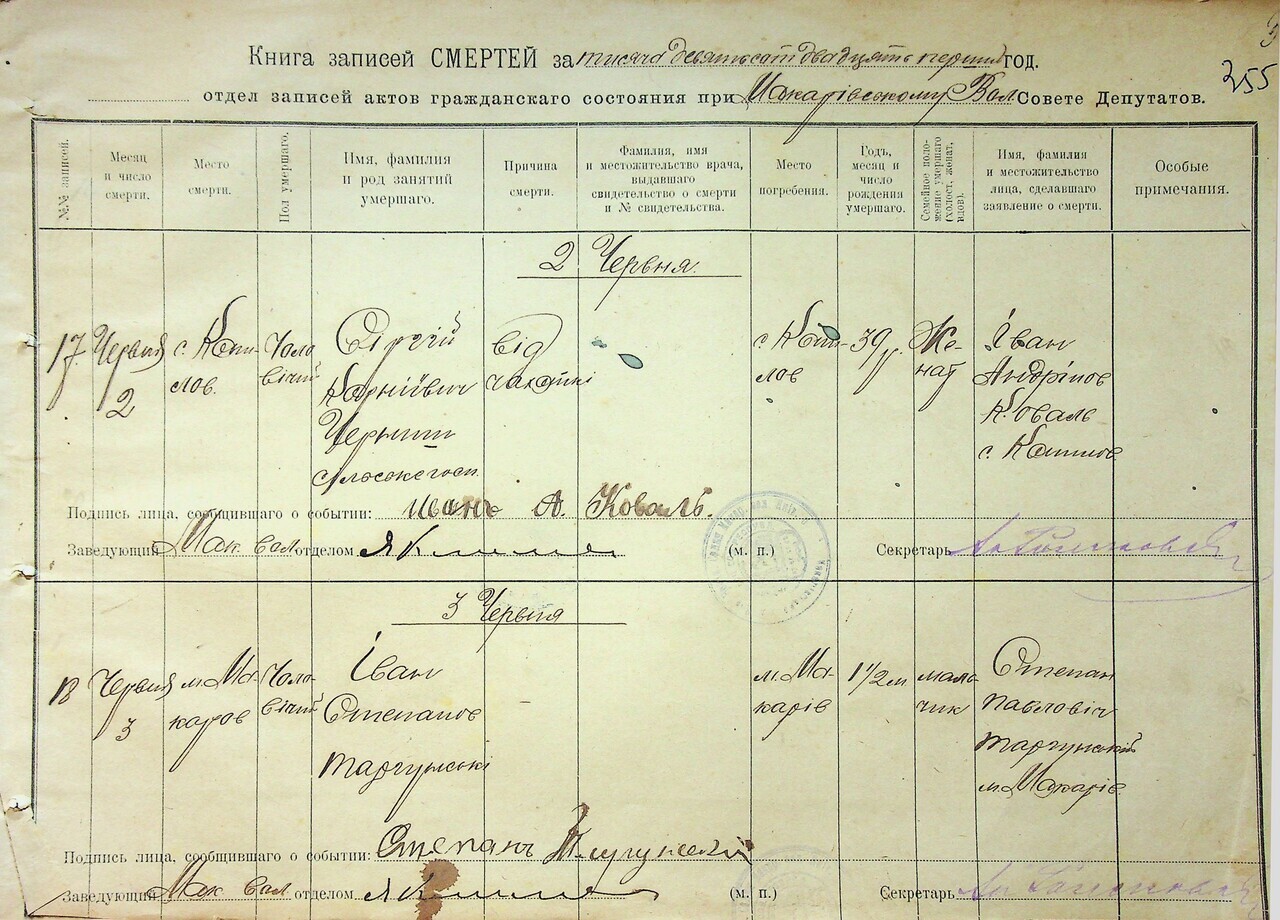 255
Книга записей СМЕРТЕЙ за тисяча девятьсот двадцять перший год.
отдел записей актов гражданскаго состояния при Макарівському Вол Совете Депутатов.
№№ записей.
Месяц и число смерти.
Место смерти.
Пол умершаго.
Имя, фамилия и род занятий умершаго.
Причина смерти.
Фамилия, имя и местожительство врача, выдавшаго свидетельство о смерти и № свидетельства.
Место погребения.
Годъ, месяц и число рождения умершаго.
Семейное положение умершаго (холост, женат, вдов).
Имя, фамилия и местожительство лица, сделавшаго заявление о смерти.
Особые примечания.
2 Червня
17
Червня
2
с. Копи-
лов.
Чоло
вічий
Сіргій
Корнійвич
Черниш
від
с Копи-
лов
39 р.
Же-
нат
Іван
Андріїов
Коваль
с. Копилов
Подпись лица, сообщившаго о событии: Иванъ А. Коваль.
Заведующий Мак вол отделом
(м. п.)
Секретарь
3 Червня
18
Червня
3
м. Ма-
каров
Чоло-
вічий
Іван
Степанов
Таргунські
м. Ма-
карів
1 1/2 м
мало
чик
Степан
Павловіч
Таргунский
м. Макарів
Подпись лица, сообщившаго о событии: Степанъ
Заведующий Мак вол отделом
(м. п.)
Секретарь